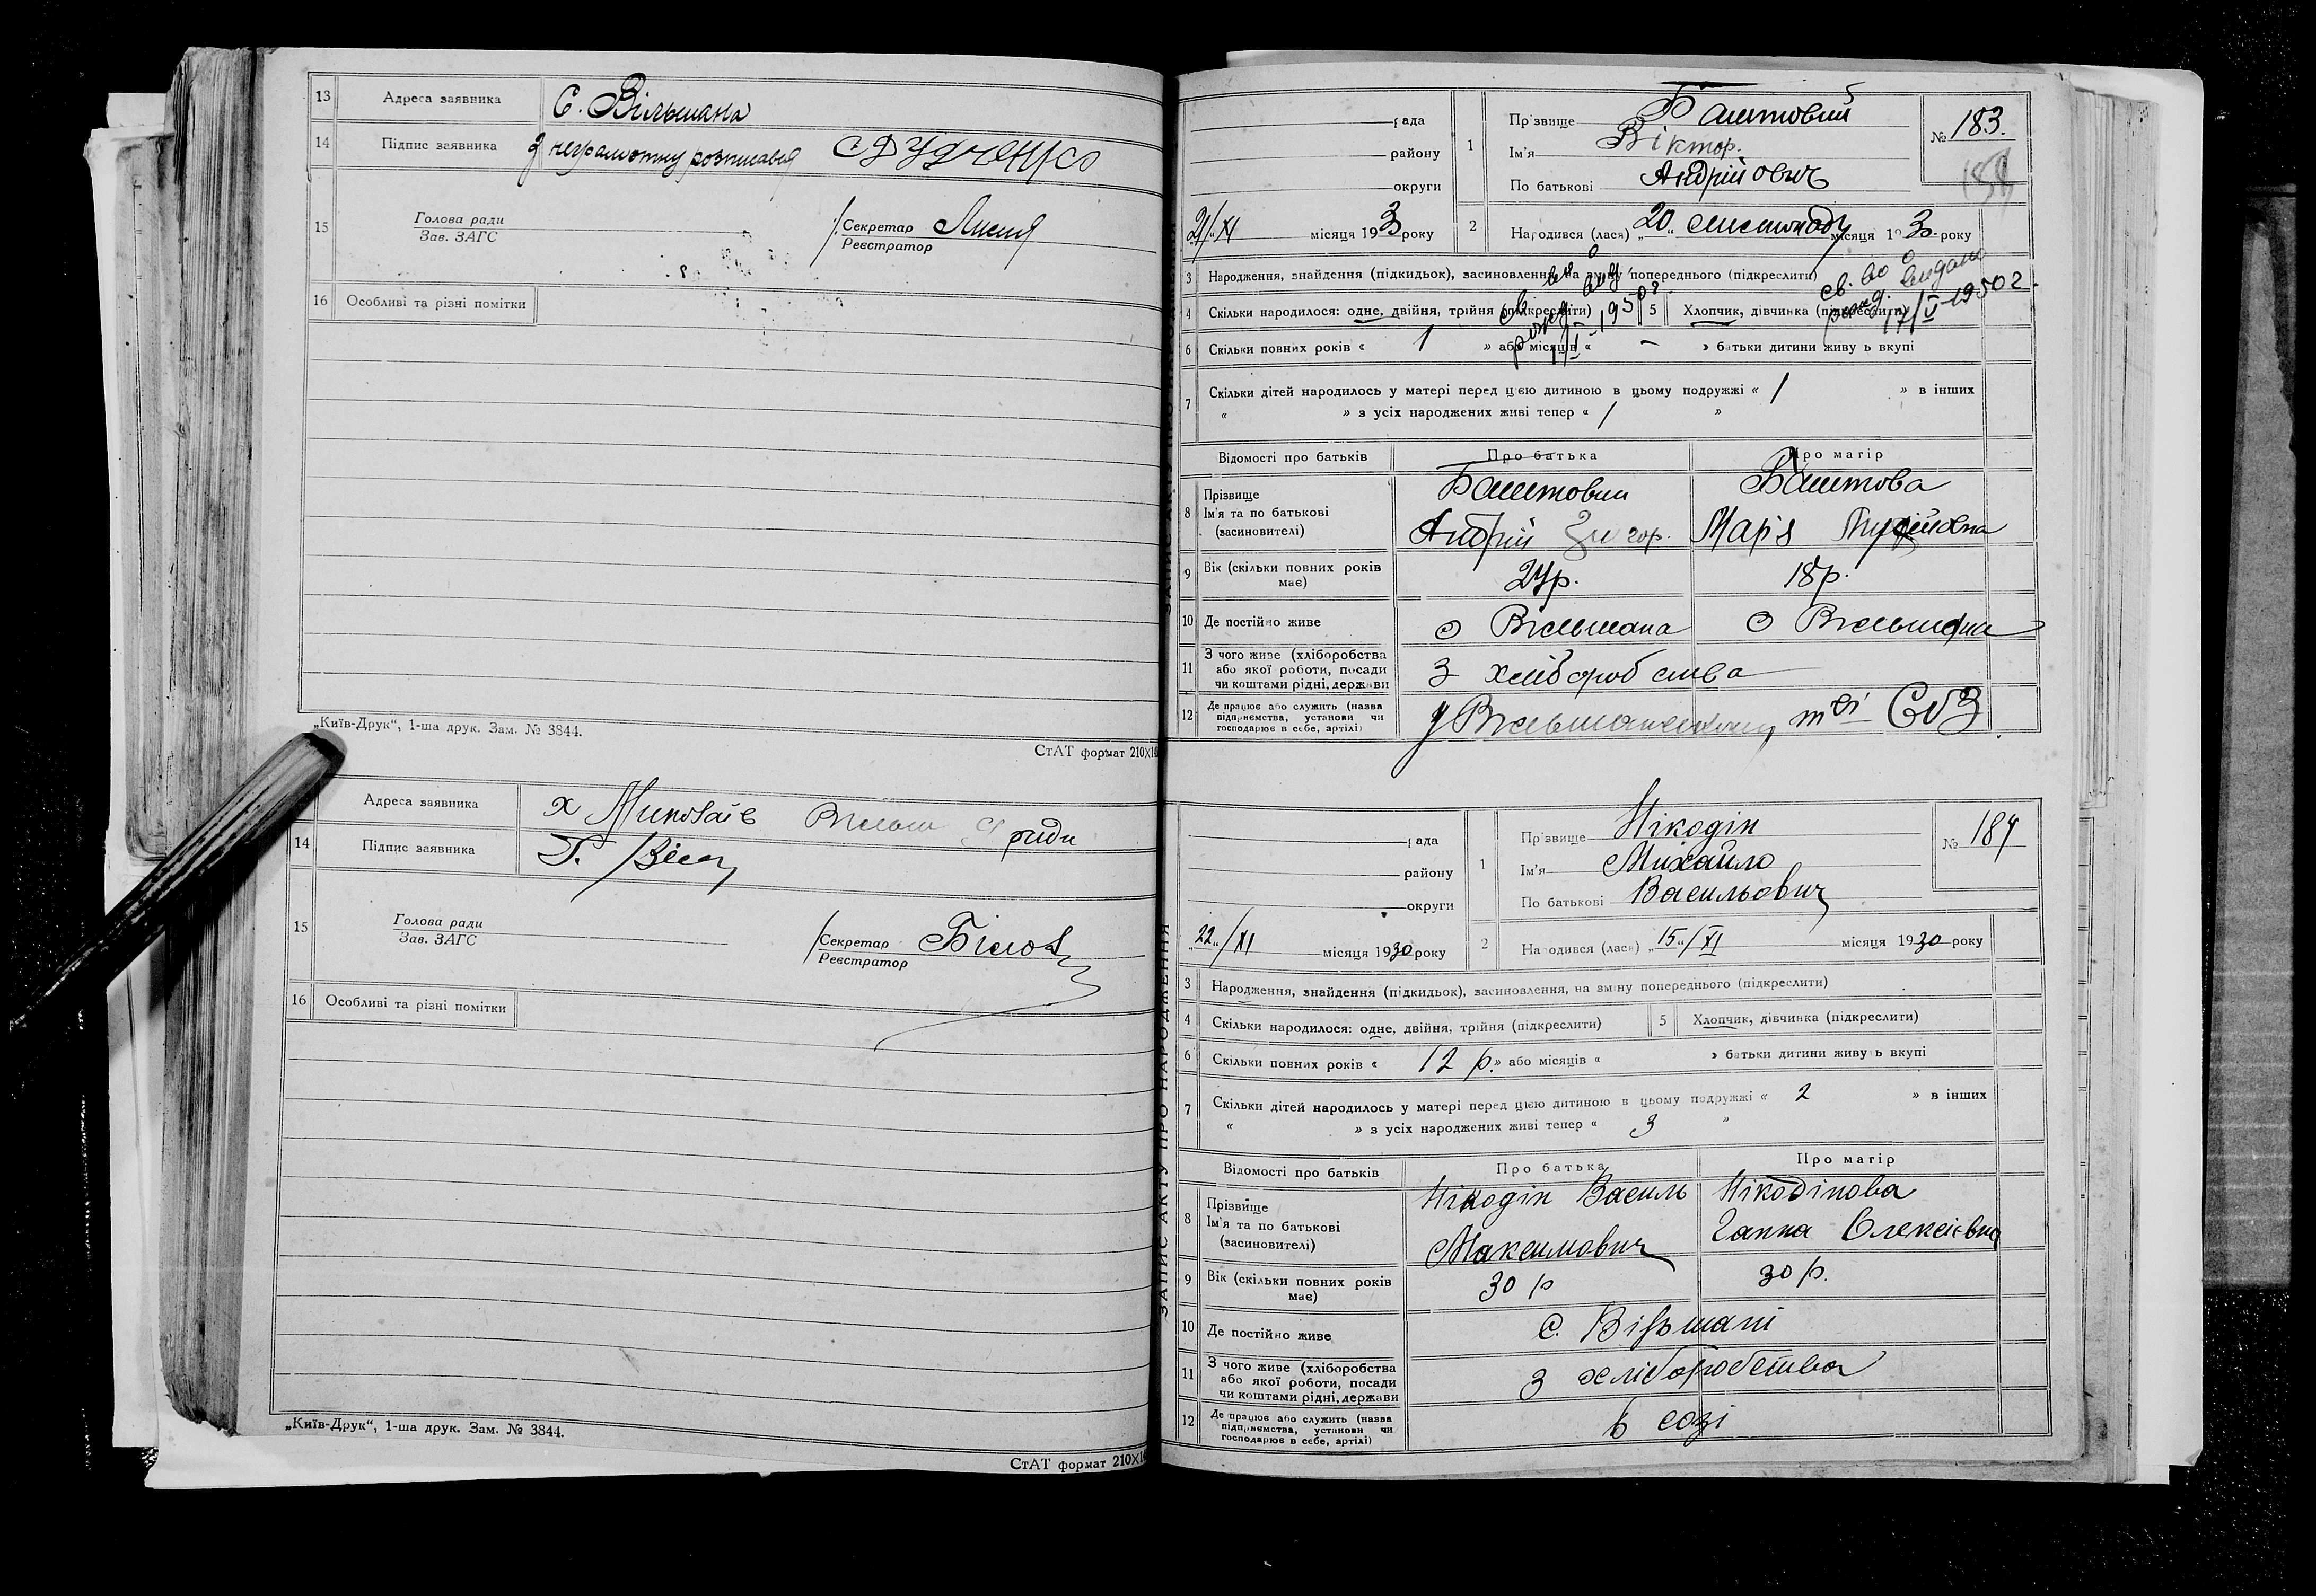 13 Адреса заявника С. Вільшана
14 Підпис заявника з неграмотну розписався Дудченко
15 Голова ради
Зав. ЗАГС
Секретар
Реєстратор
16 Особливі та різні помітки
„Київ-Друк“, 1-ша друк. Зам. № 3844.
СтАТ формат 210X
Адреса заявника х Миколаїв ради
14 Підпис заявника
15 Голова ради
Зав. ЗАГС
Секретар
Реєстратор
16 Особливі та різні помітки
„Київ-Друк“, 1-ша друк. Зам. № 3844.
СтАТ формат 210X
ЗАПИС АКТУ ПРО НАРОДЖЕННЯ
рада
району
округи
21/XI місяця 193 року
1 Прізвище Баштовий
Ім'я Віктор.
По батькові Андрійович
№ 183.
2 Народився (лась) „20“ листопаду місяця 193 року
3 Народження, знайдення (підкидьок), засиновлення, на зміну попереднього (підкреслити)
4 Скільки народилося: одне, двійня, трійня (підкреслити) 5 Хлопчик, дівчинка (підкреслити)
св. во о видано
1950 г.
17/V-1950 г.
6 Скільки повних років « 1 » або місяців « – » батьки дитини живуть вкупі
7 Скільки дітей народилось у матері перед цією дитиною в цьому подружжі « 1 » в інших
« » з усіх народжених живі тепер « 1 »
Відомості про батьків Про батька Про матір
8 Прізвище Баштовий Баштова
Ім'я та по батькові Андрій Марія
(засиновителі)
9 Вік (скільки повних років має) 24р. 18р.
10 Де постійно живе с Вільшана с Вільшана
11 З чого живе (хліборобства або якої роботи, посади чи коштами рідні, держави З хліборобства
12 Де працює або служить (назва підприємства, установи чи господарює в себе, артілі) у СОЗ
рада
району
округи
„22“/XI місяця 1930 року
1 Прізвище Нікодін
Ім'я Михайло
По батькові Васильович
№ 184
2 Народився (лась) „15“/XI місяця 1930 року
3 Народження, знайдення (підкидьок), засиновлення, на зміну попереднього (підкреслити)
4 Скільки народилося: одне, двійня, трійня (підкреслити) 5 Хлопчик, дівчинка (підкреслити)
6 Скільки повних років « 12 р.» або місяців « » батьки дитини живуть вкупі
7 Скільки дітей народилось у матері перед цією дитиною в цьому подружжі « 2 » в інших
« » з усіх народжених живі тепер « 3 »
Відомості про батьків Про батька Про матір
8 Прізвище Нікодін Василь Нікодінова
Ім'я та по батькові Максимович Ганна Олексієвна
(засиновителі)
9 Вік (скільки повних років має) 30 р 30 р.
10 Де постійно живе с. Вільшані
11 З чого живе (хліборобства або якої роботи, посади чи коштами рідні, держави З хліборобства
12 Де працює або служить (назва підприємства, установи чи господарює в себе, артілі) в созі